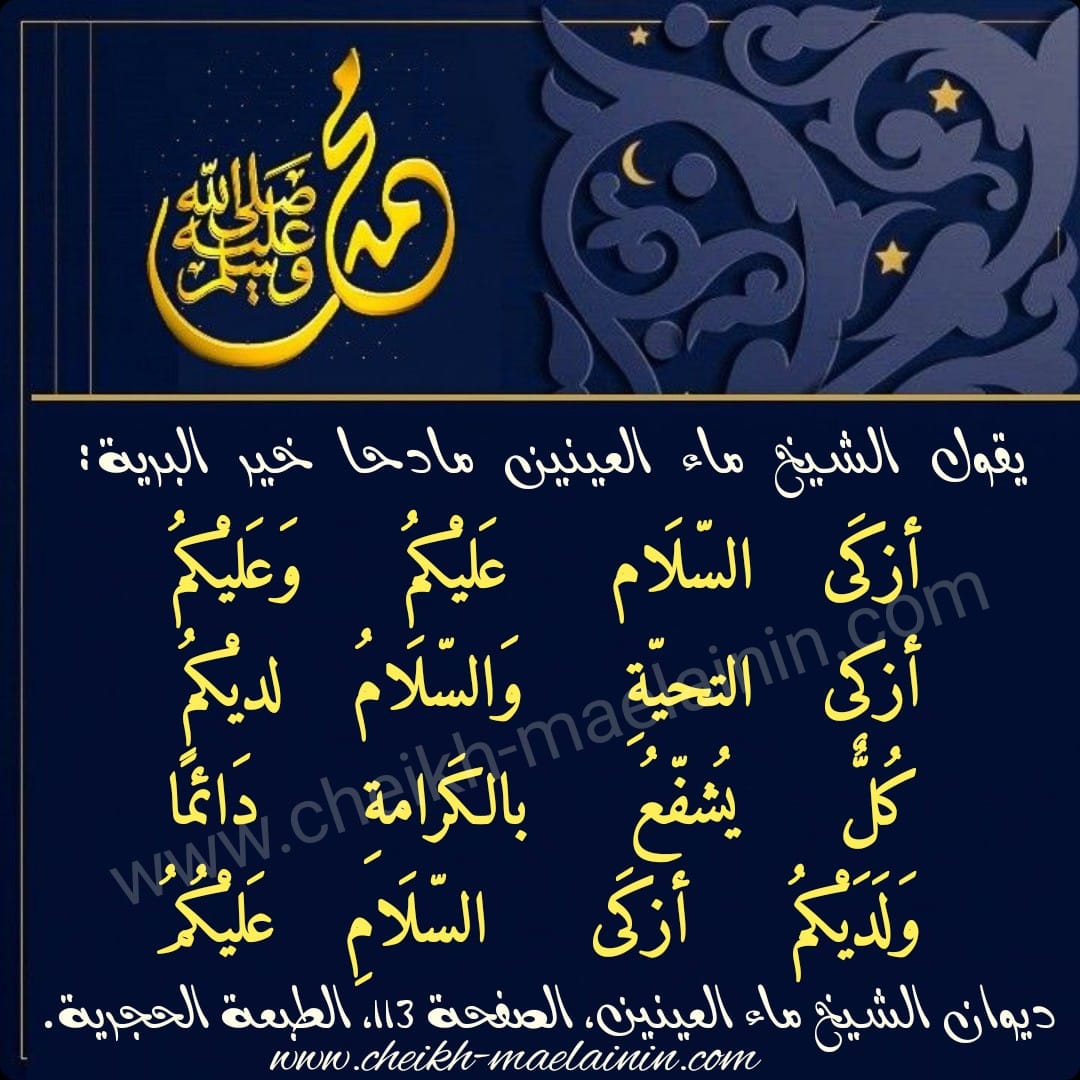 محمد
صلى الله
عليه
وسلم
يقول الشيخ ماء العينين مادحا خير البرية:
أزكَى السّلَام عَليْكمُ وَعَليْكمُ
أزكى التحيّةِ وَالسّلَامُ لديْكمُ
كُلٌّ يُشفّعُ بالكَرامةِ دَائمًا
وَلَدَيْكمُ أزكَى السّلَامِ عَليْكُمُ
ديوان الشيخ ماء العينين، الصفحة 113، الطبعة الحجرية.
www.cheikh-maelainin.com
www.cheikh-maelainin.com